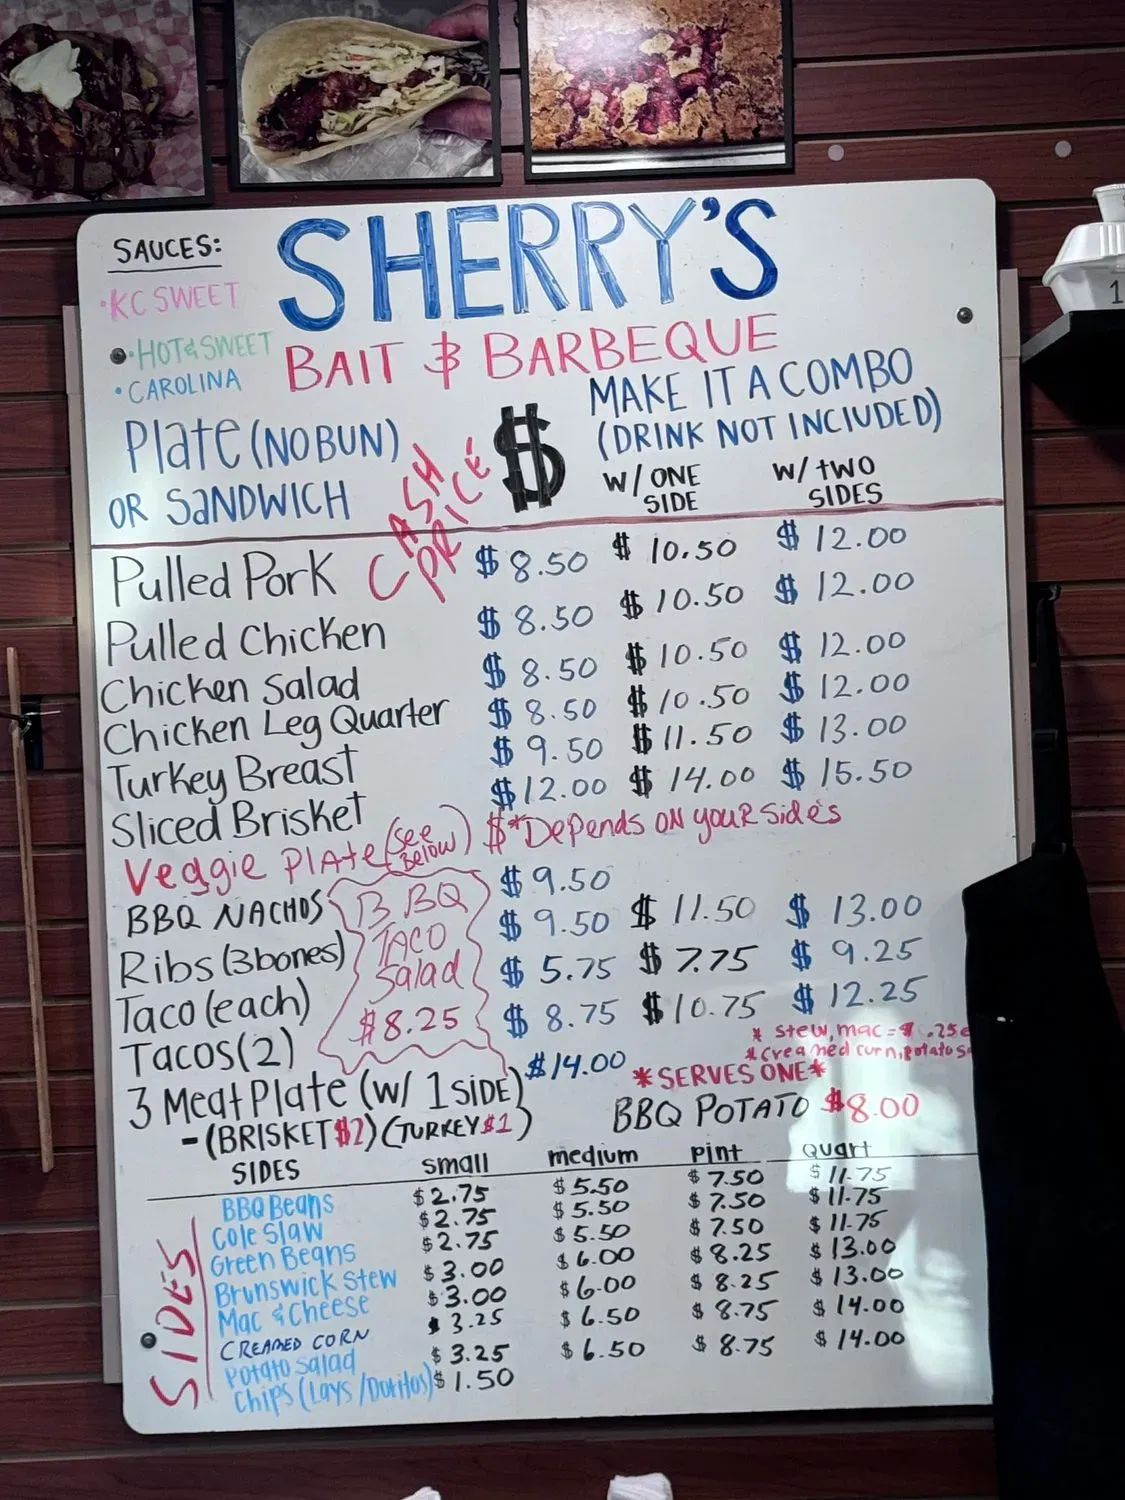 SHERRY'S
BAIT & BARBEQUE
SAUCES:
•KC SWEET
•HOT & SWEET
•CAROLINA
Plate (NO BUN)
OR SANDWICH
CASH PRICE
$
MAKE IT A COMBO
(DRINK NOT INCLUDED)
W/ ONE SIDE
W/ TWO SIDES
Pulled Pork $8.50 $10.50 $12.00
Pulled Chicken $8.50 $10.50 $12.00
Chicken Salad $8.50 $10.50 $12.00
Chicken Leg Quarter $8.50 $10.50 $12.00
Turkey Breast $9.50 $11.50 $13.00
Sliced Brisket $12.00 $14.00 $15.50
Veggie Plate (see Below) $*Depends on your sides
BBQ NACHOS $9.50
Ribs (3bones) $9.50 $11.50 $13.00
Taco (each) $5.75 $7.75 $9.25
Tacos (2) $8.75 $10.75 $12.25
BBQ
TACO
Salad
$8.25
* stew, mac =
* creamed corn, potato
3 Meat Plate (w/ 1 SIDE) $14.00
*SERVES ONE*
-(BRISKET $2) (TURKEY $1)
BBQ POTATO $8.00
SIDES small medium pint quart
SIDES
BBQ Beans $2.75 $5.50 $7.50 $11.75
Cole Slaw $2.75 $5.50 $7.50 $11.75
Green Beans $2.75 $5.50 $7.50 $11.75
Brunswick Stew $3.00 $6.00 $8.25 $13.00
Mac & Cheese $3.00 $6.00 $8.25 $13.00
CREAMED CORN $3.25 $6.50 $8.75 $14.00
Potato Salad $3.25 $6.50 $8.75 $14.00
Chips (Lays/Doritos) $1.50